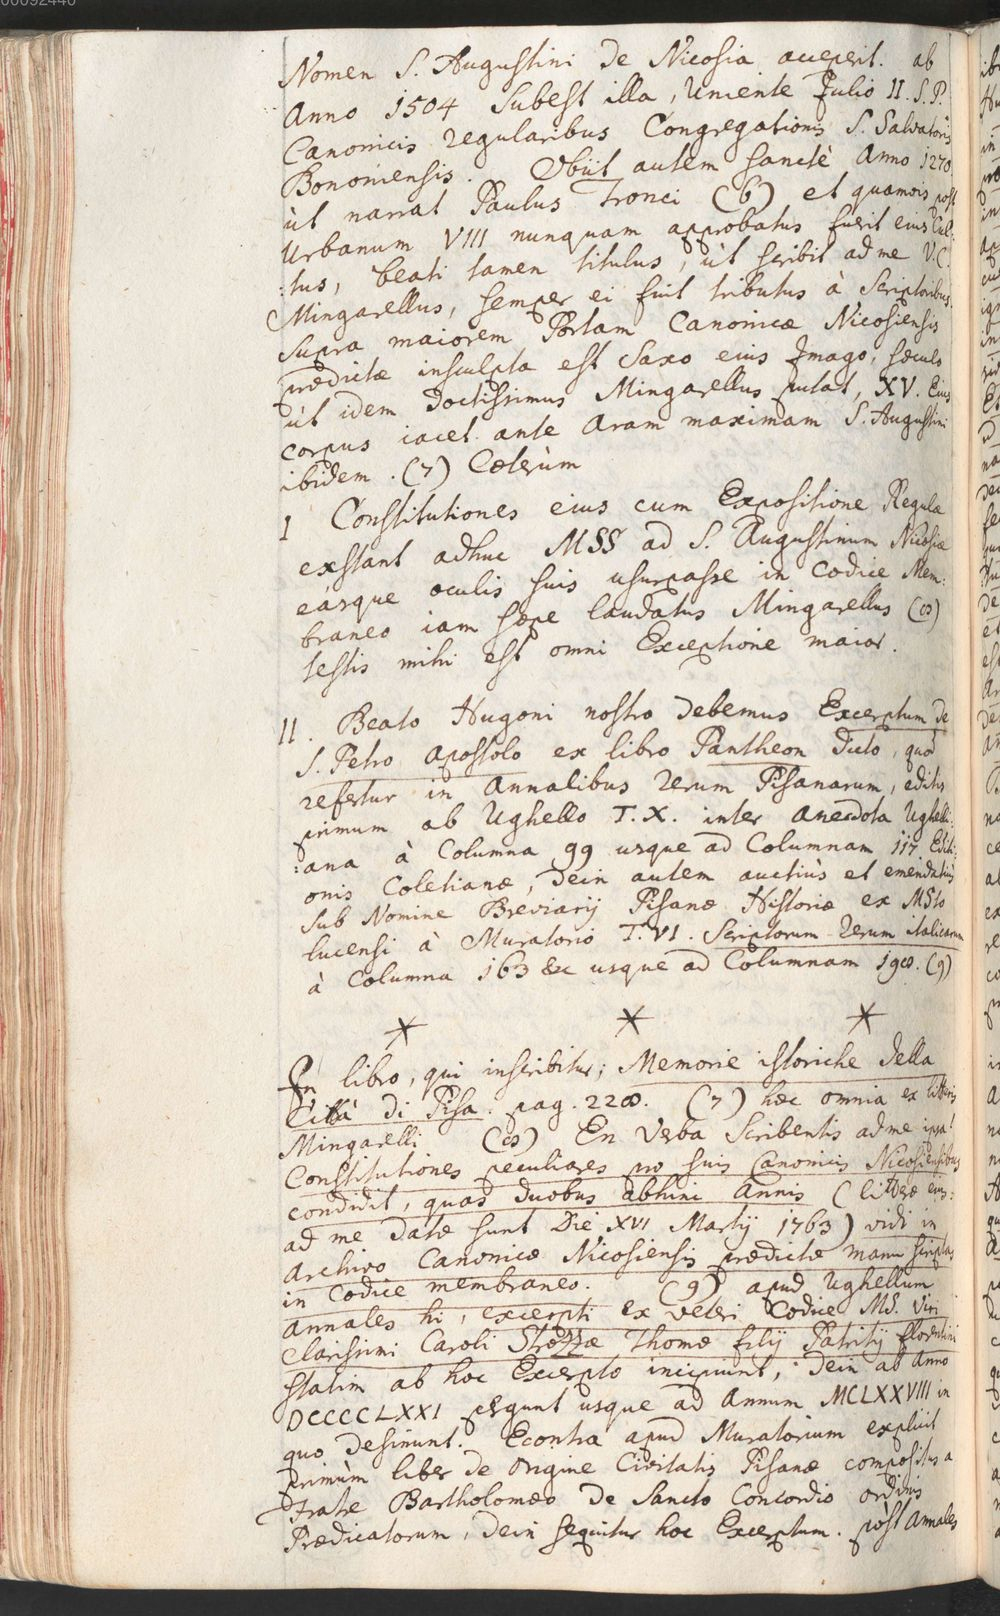 00092440
Nomen S. Augustini de Nicosia acceperit. ab
Anno 1504 subest illa, Uniente Julio II. S. P.
Canonicis regularibus Congregationis S. Salvatoris
Bononiensis. Obiit autem sanctè Anno 1270
ùt narrat Paulus Tronci (6) et quamvis post
Urbanum VIII nunquam approbatus fuerit eius Cul:
:tus, beati tamen titulus, ùt scribit ad me V. C.
Mingarellus, semper ei fuit tributus à Scriptoribus.
Supra maiorem Portam Canonicæ Nicosiensis
prædictæ insculpta est Saxo eius Imago, sæculo
ùt idem doctissimus Mingarellus putat, XV. Eius
corpus iacet ante Aram maximam S. Augustini
ibidem. (7) Cæterùm
I Constitutiones eius cum Expositione Regulæ
exstant adhuc MSS ad S. Augustinum Nicosiæ
eásque oculis suis usurpasse in Codice Mem:
braneo iam sæpe laudatus Mingarellus (8)
testis mihi est omni Exceptione maior.
II. Beato Hugoni nostro debemus Excerptum de
S. Petro Apostolo ex libro Pantheon dicto, quod
refertur in Annalibus rerum Pisanarum, editis
primum ab Ughello T. X. inter Anecdota Ughelli:
:ana à Columna 99 usque ad Columnam 117. Editi:
onis Coletianæ, dein autem auctiùs et emendatiùs
sub Nomine Breviarij Pisanæ Historiæ ex MSto
lucensi à Muratorio T. VI. Scriptorum rerum italicarum
à Columna 163 &c usque ad Columnam 198. (9)
* * *
In libro, qui inscribitur; Memorie istoriche della
Città di Pisa. pag. 228. (7) hæc omnia ex litteris
Mingarelli (8) En Verba Scribentis ad me ipsa!
Constitutiones peculiares pro suis Canonicis Nicosiensibus
condidit, quas duobus abhinc Annis (literæ eius:
ad me datæ sunt Die XVI Martij 1763) vidi in
Archivo Canonicæ Nicosiensis prædictæ manu scriptas
in Codice membraneo. (9) apud Ughellum
Annales hi, excerpti ex veteri Codice MS. Viri
Clarissimi Caroli Strozzæ Thomæ filij Patritij florentini
statim ab hoc Excerpto incipiunt; dein ab Anno
DCCCCLXXI pergunt usque ad Annum MCLXXVIII in
quo desinunt. Econtra apud Muratorium explicit
primùm liber de Origine Civitatis Pisanæ compositus a
Fratre Bartholomæo de Sancto Concordio ordinis
Prædicatorum, dein sequitur hoc Excerptum. pòst Annales